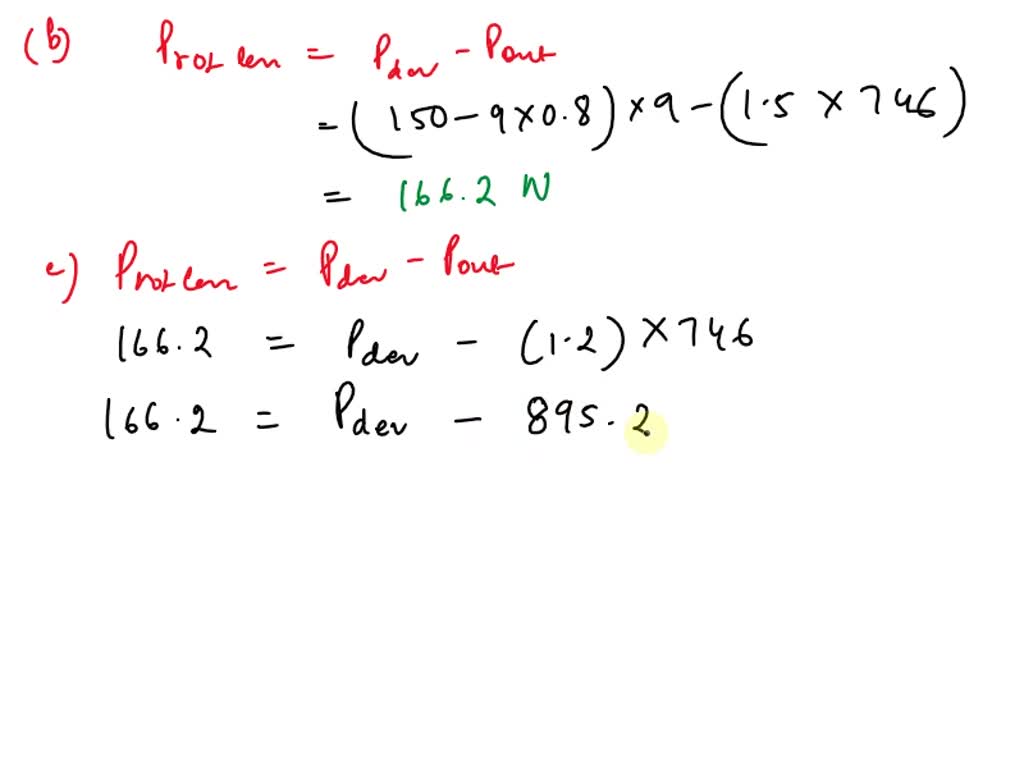 (b) Prot len = Pdev - Pout
= (150 - 9 × 0.8) × 9 - (1.5 × 746)
= 166.2 W
c) Prot len = Pdev - Pout
166.2 = Pdev - (1.2) × 746
166.2 = Pdev - 895.2